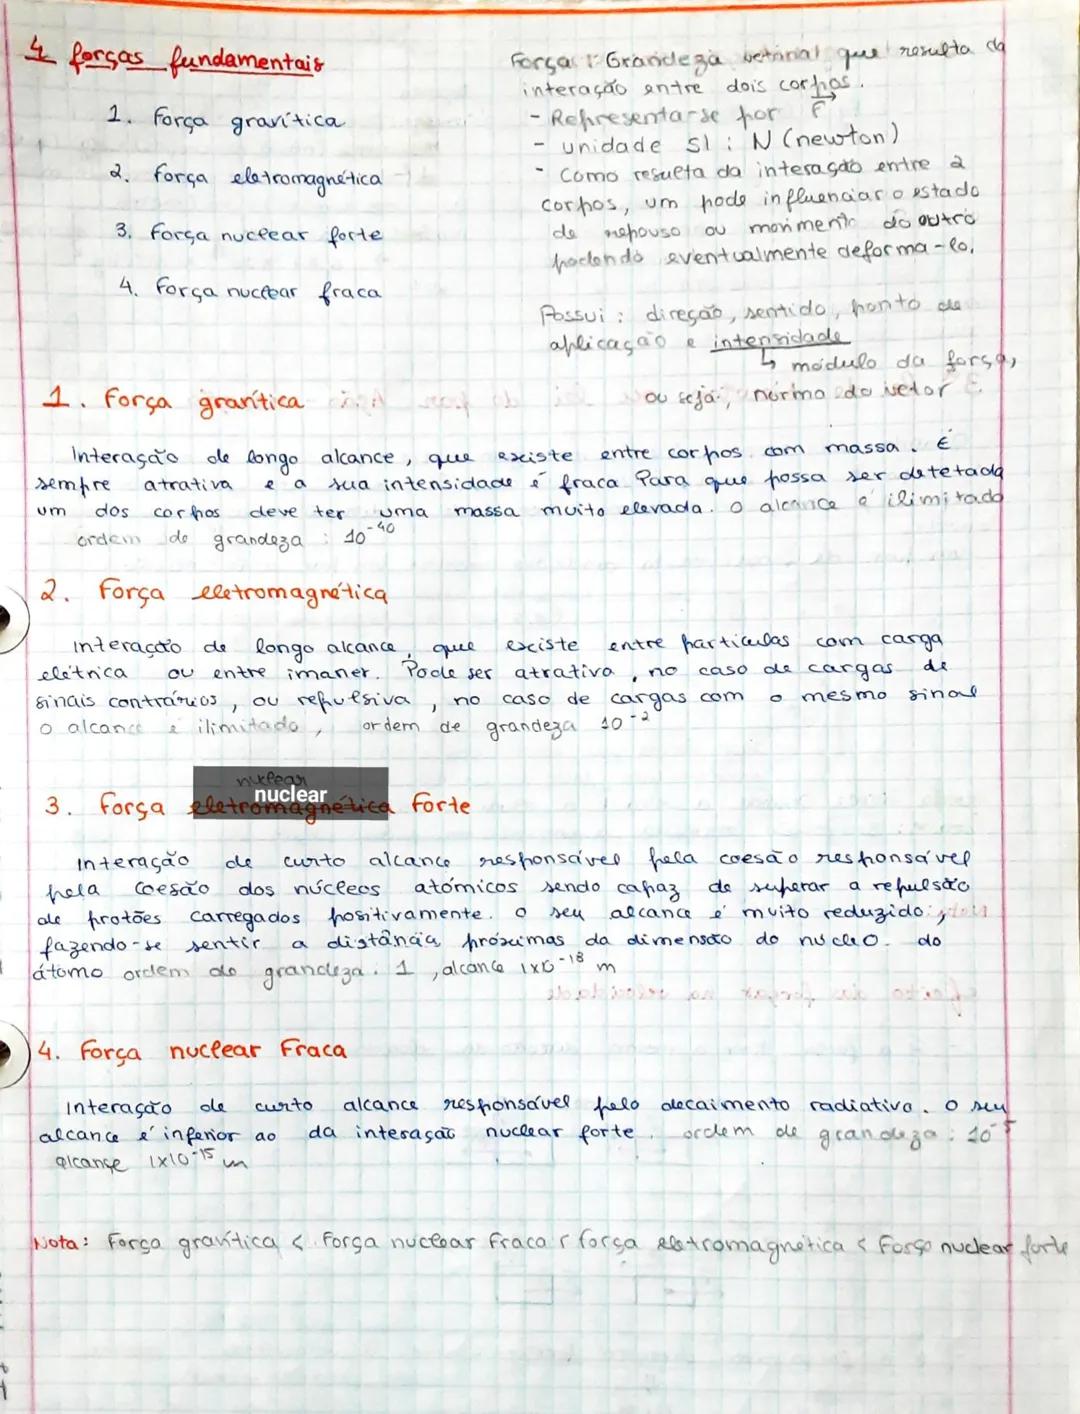 4 forças fundamentais
1. força gravítica
2. força eletromagnética
3. força nuclear forte
4. força nuclear fraca
Força: Grandeza vetorial que resulta da
interação entre dois corpos.
- Representa-se por F
- unidade SI: N (newton)
- Como resulta da interação entre 2
corpos, um pode influenciar o estado
de repouso ou movimento do outro
podendo eventualmente deforma-lo.
Possui: direção, sentido, ponto de
aplicação e intensidade
↳ módulo da força,
ou seja, norma do vetor
1. Força gravítica
Interação de longo alcance, que existe entre corpos com massa. É
sempre atrativa e a sua intensidade é fraca Para que possa ser detetada
um dos corpos deve ter uma massa muito elevada. O alcance é ilimitado
ordem de grandeza: 10⁻⁴⁰
2. Força eletromagnética
Interação de longo alcance, que existe entre particulas com carga
elétrica ou entre imanes. Pode ser atrativa, no caso de cargas de
sinais contrários, ou repulsiva, no caso de cargas com o mesmo sinal
o alcance é ilimitado, ordem de grandeza 10⁻²
nuclear
nuclear
3. Força eletromagnética forte
Interação de curto alcance responsável pela coesão responsável
pela coesão dos núcleos atómicos sendo capaz de superar a repulsão
de protões carregados positivamente. O seu alcance é muito reduzido,
fazendo-se sentir a distância próximas da dimensão do nucleo do
átomo ordem de grandeza: 1, alcance 1x10⁻¹⁸ m
4. Força nuclear Fraca
Interação de curto alcance responsável pelo decaimento radiativo. O seu
alcance é inferior ao da interação nuclear forte. ordem de grandeza: 10⁻⁵
alcançe 1x10⁻¹⁵ m
Nota: Força gravítica < Força nuclear Fraca < força eletromagnética < Força nuclear forte